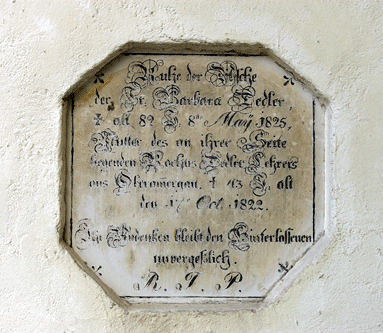 Ruhe der Asche
der Fr. Barbara Dedler,
✝ alt 82 J. 8t Maÿ 1825,
Mutter des an ihrer Seite
liegenden Rochus Dedler Lehrers
aus Obramergau, ✝ 43 J. alt
den 17t Oct. 1822.
Ihr Andenken bleibt den Hinterlassenen
unvergesslich.
R. I. P.